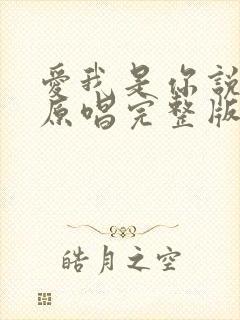 愛我是你說
原唱完整版
皓月之空